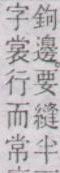 鉤邊。要縫半
字裳行而常